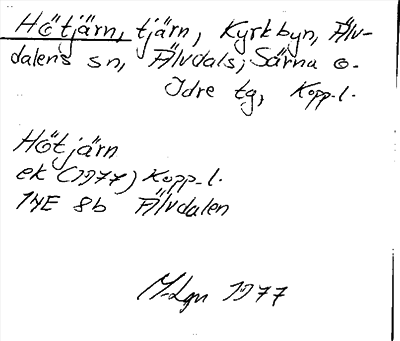 Hötjärn, tjärn, Kyrkbyn, Älv-
dalens sn, Älvdals, Särna o.
Idre tg, Kopp.l.
Hötjärn
ek (1977) Kopp.l.
14E 8b Älvdalen
M-Lgn 1977